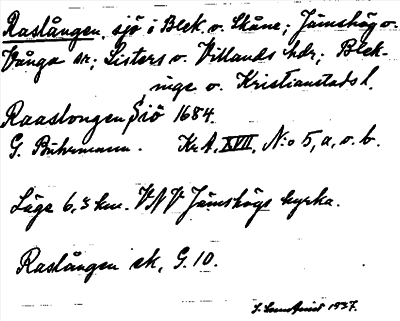 Raslången, sjö i Blek. o. Skåne; Jämshög o.
Vånga sr; Listers o. Villands hdr; Blek-
inge o. Kristianstads l.
Raaslongen Siö 1684.
G. Buhrmann. KrA. XVII, N:o 5, a, o. b.
Läge 6,3 km. VNV Jämshögs kyrka.
Raslången ek, G. 10.
1937.